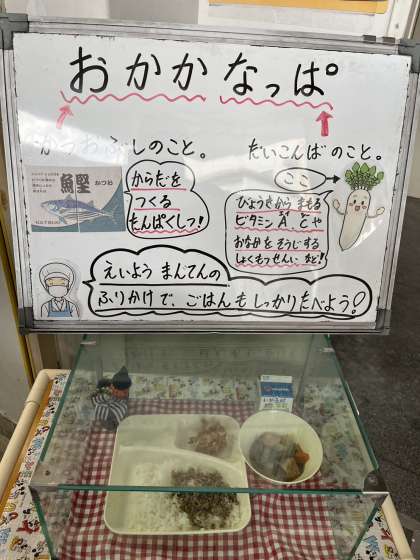 おかかなっぱ
かつおぶしのこと。
だいこんばのこと。
鰹
かつお
からだを
つくる
たんぱくしつ!
ここ
びょうきから まもる
ビタミンA、Cや
おなかを そうじする
しょくもつせんい など!
えいよう まんてんの
ふりかけで、ごはんも しっかりたべよう!